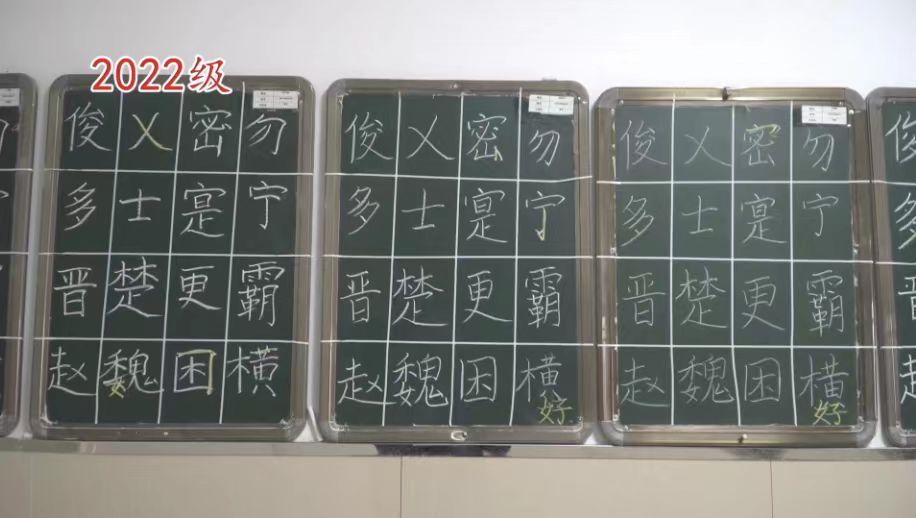 2022级
俊乂密勿
多士寔宁
晋楚更霸
赵魏困横
俊乂密勿
多士寔宁
晋楚更霸
赵魏困横
好
俊乂密勿
多士寔宁
晋楚更霸
赵魏困横
好